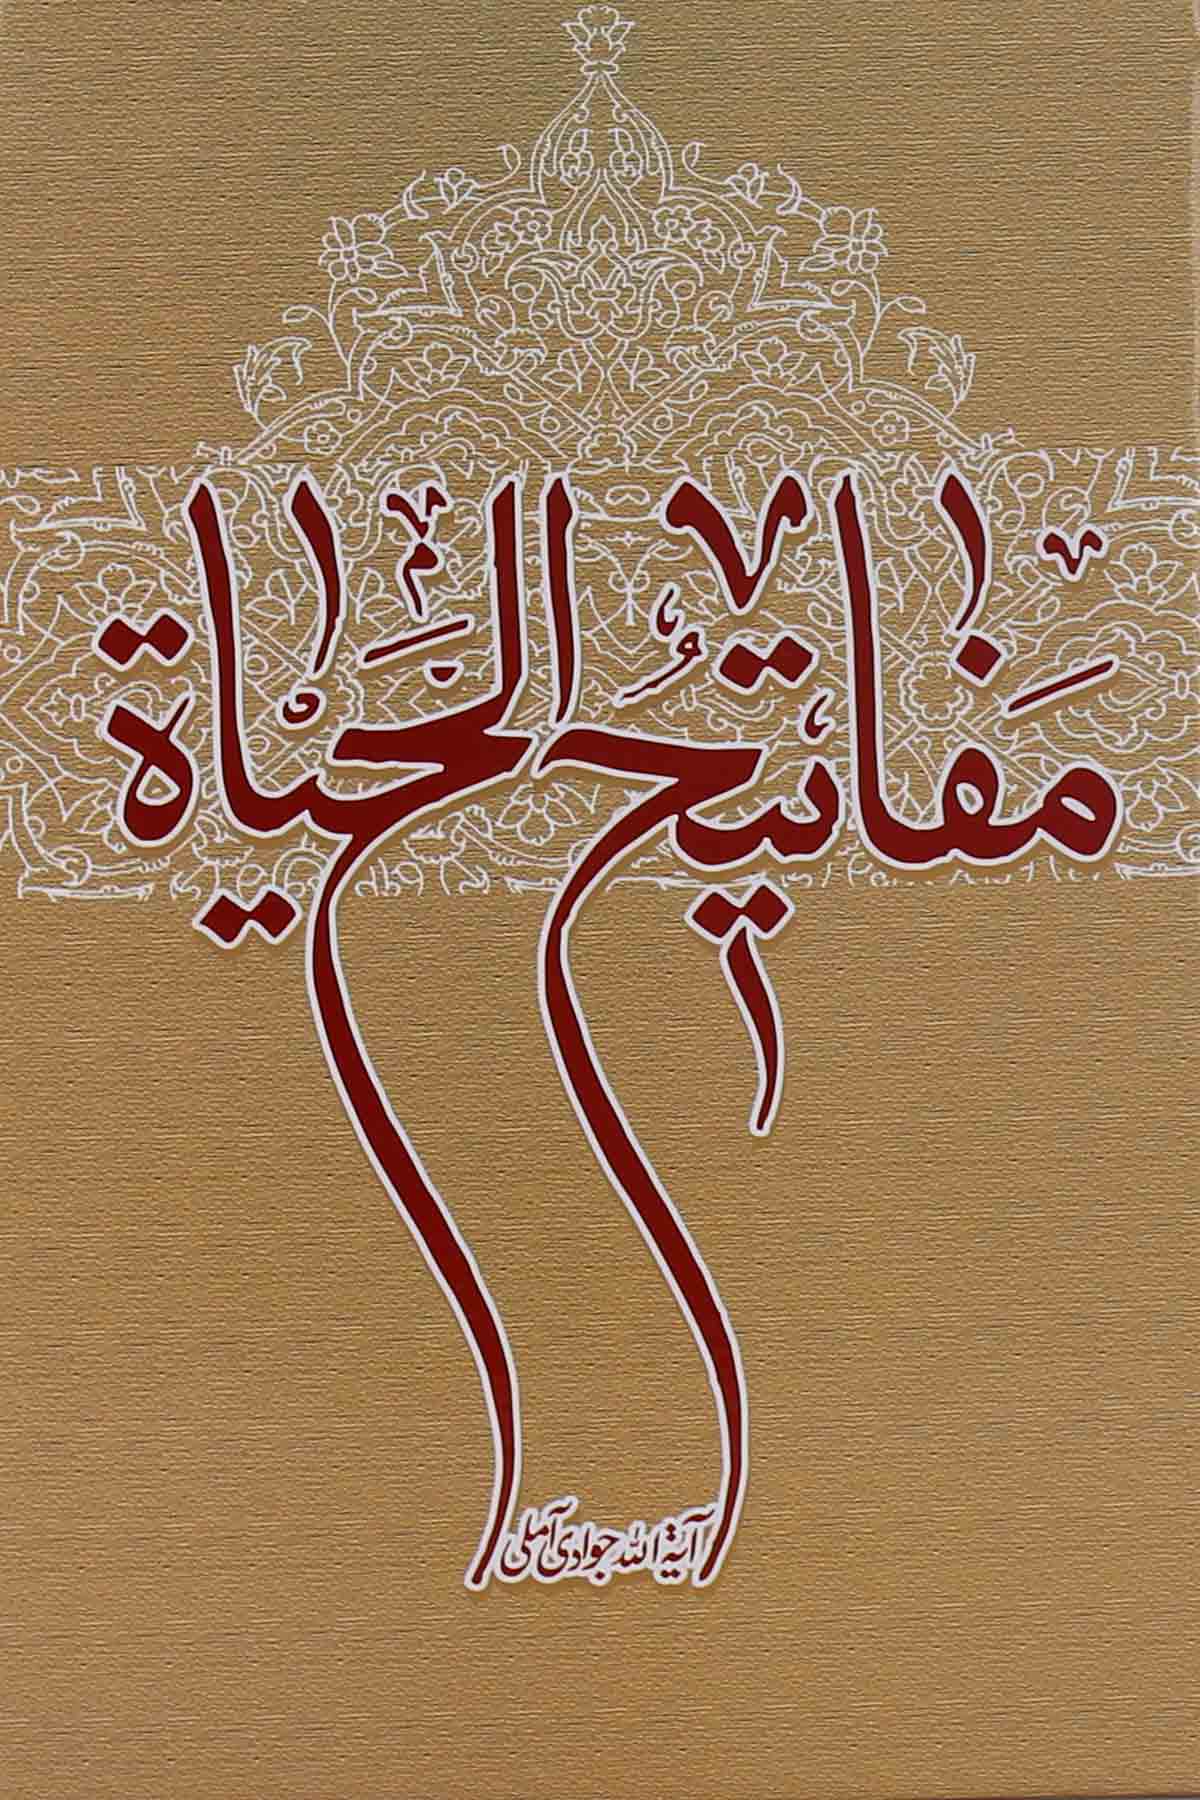 مَفَاتِيحُ الحَيَاة
آیة الله جوادی آملی